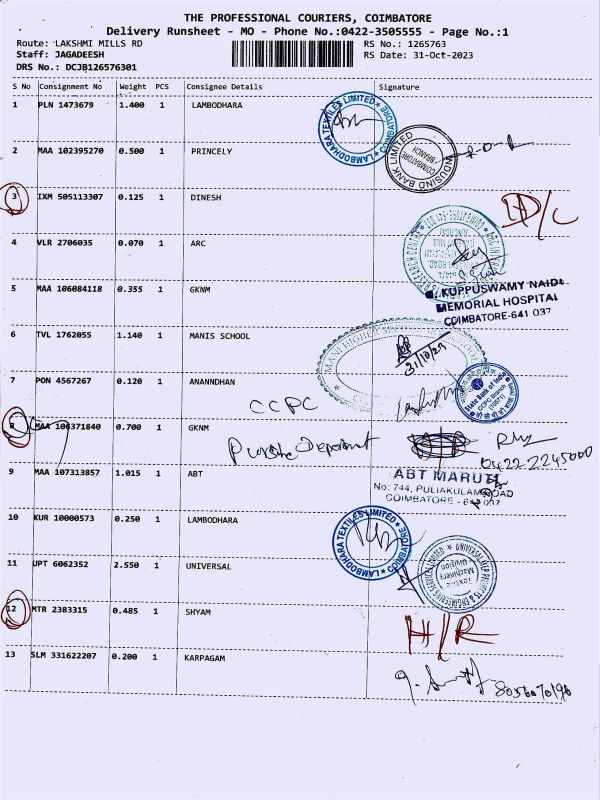 THE PROFESSIONAL COURIERS, COIMBATORE
Delivery Runsheet - MO - Phone No.:0422-3505555 - Page No.:1
Route: LAKSHMI MILLS RD RS No.: 1265763
Staff: JAGADEESH RS Date: 31-Oct-2023
DRS No.: DCJB126576301
S No Consignment No Weight PCS Consignee Details Signature
1 PLN 1473679 1.400 1 LAMBODHARA
LAMBODHARA TEXTILES LIMITED COIMBATORE
2 MAA 102395270 0.500 1 PRINCELY
INDUSIND BANK LIMITED COIMBATORE BRANCH
3 IXM 505113307 0.125 1 DINESH
D/C
4 VLR 2706035 0.070 1 ARC
5 MAA 106084118 0.355 1 GKNM
G. KUPPUSWAMY NAIDU
MEMORIAL HOSPITAL
COIMBATORE-641 037
6 TVL 1762055 1.140 1 MANIS SCHOOL
31/10/23
7 PON 4567267 0.120 1 ANANNDHAN
CCPC
State Bank of India
8 MAA 106371840 0.700 1 GKNM
0422 2245000
9 MAA 107313857 1.015 1 ABT
ABT MARUTI
No: 744, PULIAKULAM ROAD
COIMBATORE - 641 037
10 KUR 10000573 0.250 1 LAMBODHARA
LAMBODHARA TEXTILES LIMITED COIMBATORE
11 JPT 6062352 2.550 1 UNIVERSAL
Textile Machinery Division
12 MTR 2383315 0.485 1 SHYAM
H/R
13 SLM 331622207 0.200 1 KARPAGAM
8056070190